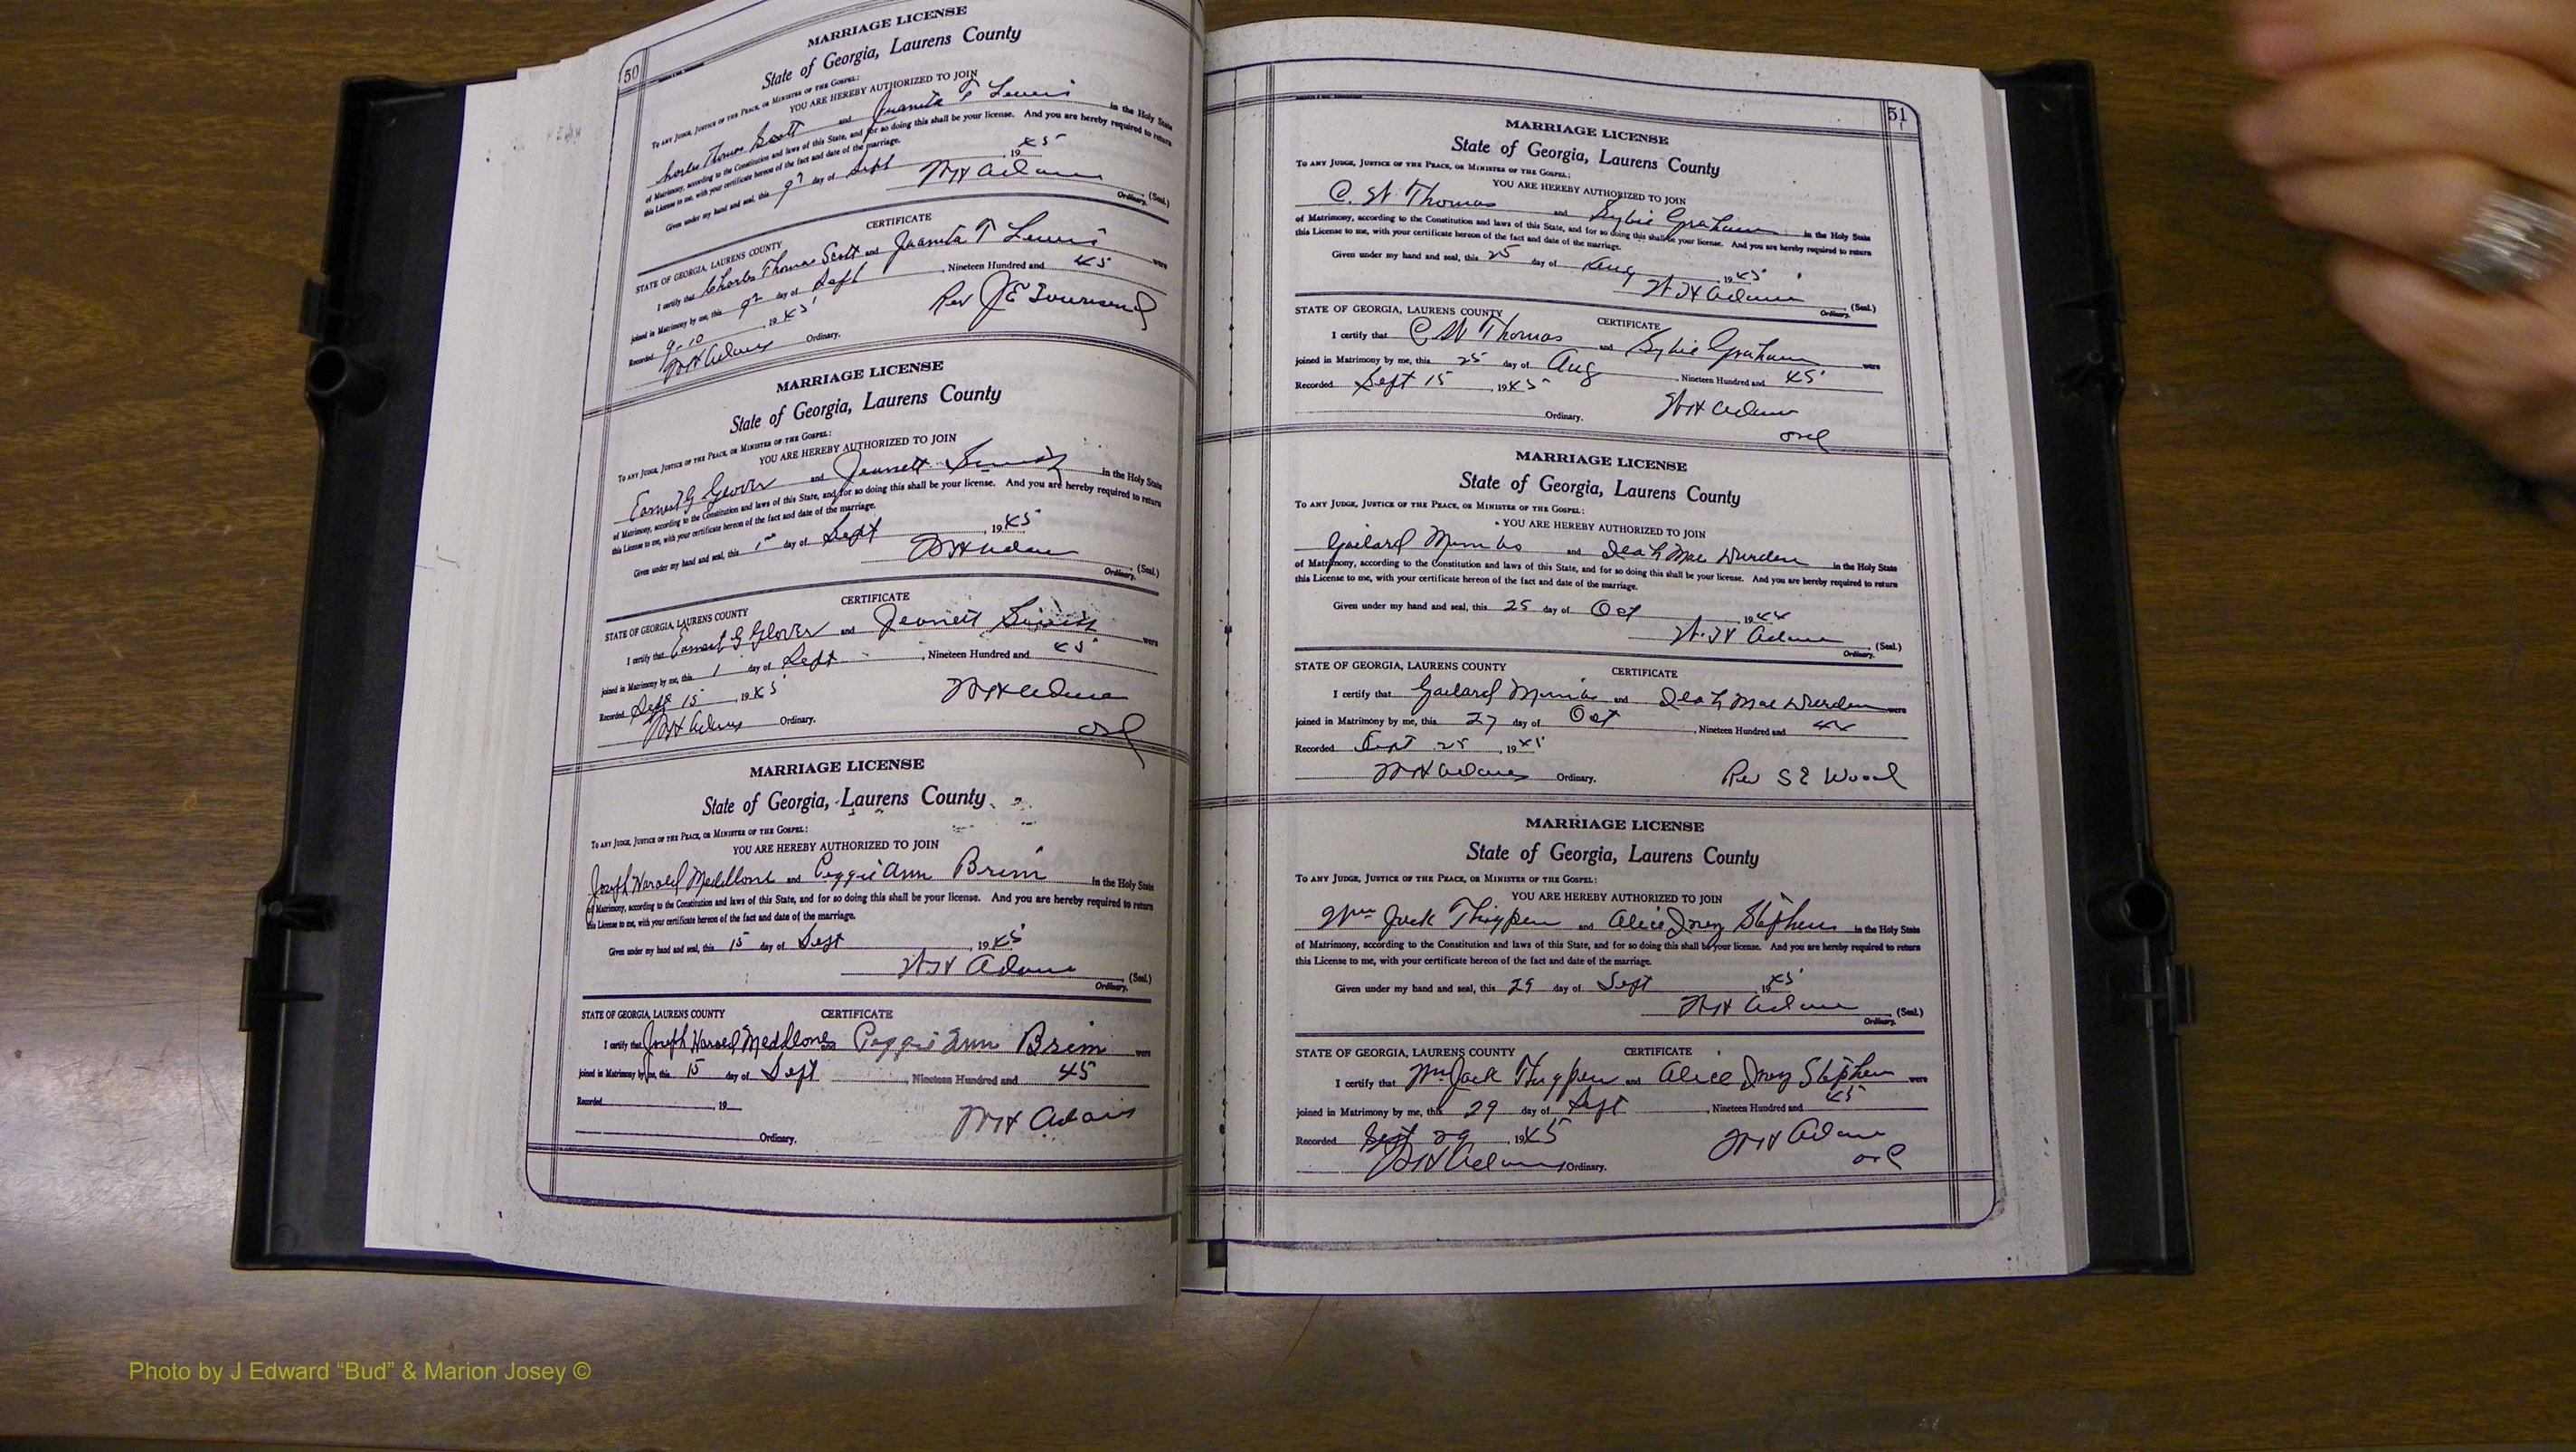 50
MARRIAGE LICENSE
State of Georgia, Laurens County
TO ANY JUDGE, JUSTICE OF THE PEACE, OR MINISTER OF THE GOSPEL:
YOU ARE HEREBY AUTHORIZED TO JOIN
Charles Thomas Scott and Juanita T Lewis in the Holy State
of Matrimony, according to the Constitution and laws of this State, and for so doing this shall be your license. And you are hereby required to return
this License to me, with your certificate hereon of the fact and date of the marriage.
Given under my hand and seal, this 9 day of Sept 1945
W H Adams (Seal.)
Ordinary.
CERTIFICATE
STATE OF GEORGIA, LAURENS COUNTY
I certify that Charles Thomas Scott and Juanita T Lewis were
joined in Matrimony by me, this 9 day of Sept, Nineteen Hundred and 45
Recorded 9-10, 1945
Rev J E Townsend
W H Adams Ordinary.
MARRIAGE LICENSE
State of Georgia, Laurens County
TO ANY JUDGE, JUSTICE OF THE PEACE, OR MINISTER OF THE GOSPEL:
YOU ARE HEREBY AUTHORIZED TO JOIN
Earnest G Glover and Jeanett Smith in the Holy State
of Matrimony, according to the Constitution and laws of this State, and for so doing this shall be your license. And you are hereby required to return
this License to me, with your certificate hereon of the fact and date of the marriage.
Given under my hand and seal, this 1 day of Sept, 1945
W H Adams (Seal.)
Ordinary.
CERTIFICATE
STATE OF GEORGIA, LAURENS COUNTY
I certify that Earnest G Glover and Jeanett Smith were
joined in Matrimony by me, this 1 day of Sept, Nineteen Hundred and 45
Recorded Sept 15, 1945
W H Adams
W H Adams Ordinary.
ord
MARRIAGE LICENSE
State of Georgia, Laurens County
TO ANY JUDGE, JUSTICE OF THE PEACE, OR MINISTER OF THE GOSPEL:
YOU ARE HEREBY AUTHORIZED TO JOIN
Joseph Harold and Peggie Ann Brim in the Holy State
of Matrimony, according to the Constitution and laws of this State, and for so doing this shall be your license. And you are hereby required to return
this License to me, with your certificate hereon of the fact and date of the marriage.
Given under my hand and seal, this 15 day of Sept, 1945
W H Adams (Seal.)
Ordinary.
STATE OF GEORGIA, LAURENS COUNTY CERTIFICATE
I certify that Joseph Harold Peggie Ann Brim were
joined in Matrimony by me, this 15 day of Sept, Nineteen Hundred and 45
Recorded, 19
W H Adams
Ordinary.
51
MARRIAGE LICENSE
State of Georgia, Laurens County
TO ANY JUDGE, JUSTICE OF THE PEACE, OR MINISTER OF THE GOSPEL:
YOU ARE HEREBY AUTHORIZED TO JOIN
C. W. Thomas and Sybie Graham in the Holy State
of Matrimony, according to the Constitution and laws of this State, and for so doing this shall be your license. And you are hereby required to return
this License to me, with your certificate hereon of the fact and date of the marriage.
Given under my hand and seal, this 25 day of Aug 1945
W H Adams (Seal.)
Ordinary.
STATE OF GEORGIA, LAURENS COUNTY CERTIFICATE
I certify that C W Thomas and Sybie Graham were
joined in Matrimony by me, this 25 day of Aug, Nineteen Hundred and 45
Recorded Sept 15, 1945
W H Adams
Ordinary.
ord
MARRIAGE LICENSE
State of Georgia, Laurens County
TO ANY JUDGE, JUSTICE OF THE PEACE, OR MINISTER OF THE GOSPEL:
YOU ARE HEREBY AUTHORIZED TO JOIN
Gailard Mimbs and Leah Mae Wurden in the Holy State
of Matrimony, according to the Constitution and laws of this State, and for so doing this shall be your license. And you are hereby required to return
this License to me, with your certificate hereon of the fact and date of the marriage.
Given under my hand and seal, this 25 day of Oct 1944
W. H Adams (Seal.)
Ordinary.
STATE OF GEORGIA, LAURENS COUNTY CERTIFICATE
I certify that Gailard Mimbs and Leah Mae Wurden were
joined in Matrimony by me, this 27 day of Oct, Nineteen Hundred and 44
Recorded Sept 25, 1945
W H Adams Ordinary. Rev S E Wood
MARRIAGE LICENSE
State of Georgia, Laurens County
TO ANY JUDGE, JUSTICE OF THE PEACE, OR MINISTER OF THE GOSPEL:
YOU ARE HEREBY AUTHORIZED TO JOIN
Wm Jack Thigpen and Alice Inez Stephens in the Holy State
of Matrimony, according to the Constitution and laws of this State, and for so doing this shall be your license. And you are hereby required to return
this License to me, with your certificate hereon of the fact and date of the marriage.
Given under my hand and seal, this 29 day of Sept 1945
W H Adams (Seal.)
Ordinary.
STATE OF GEORGIA, LAURENS COUNTY CERTIFICATE
I certify that Wm Jack Thigpen and Alice Inez Stephens were
joined in Matrimony by me, this 29 day of Sept, Nineteen Hundred and 45
Recorded Sept 29 1945
W H Adams
W H Adams Ordinary.
ord
Photo by J Edward “Bud” & Marion Josey ©